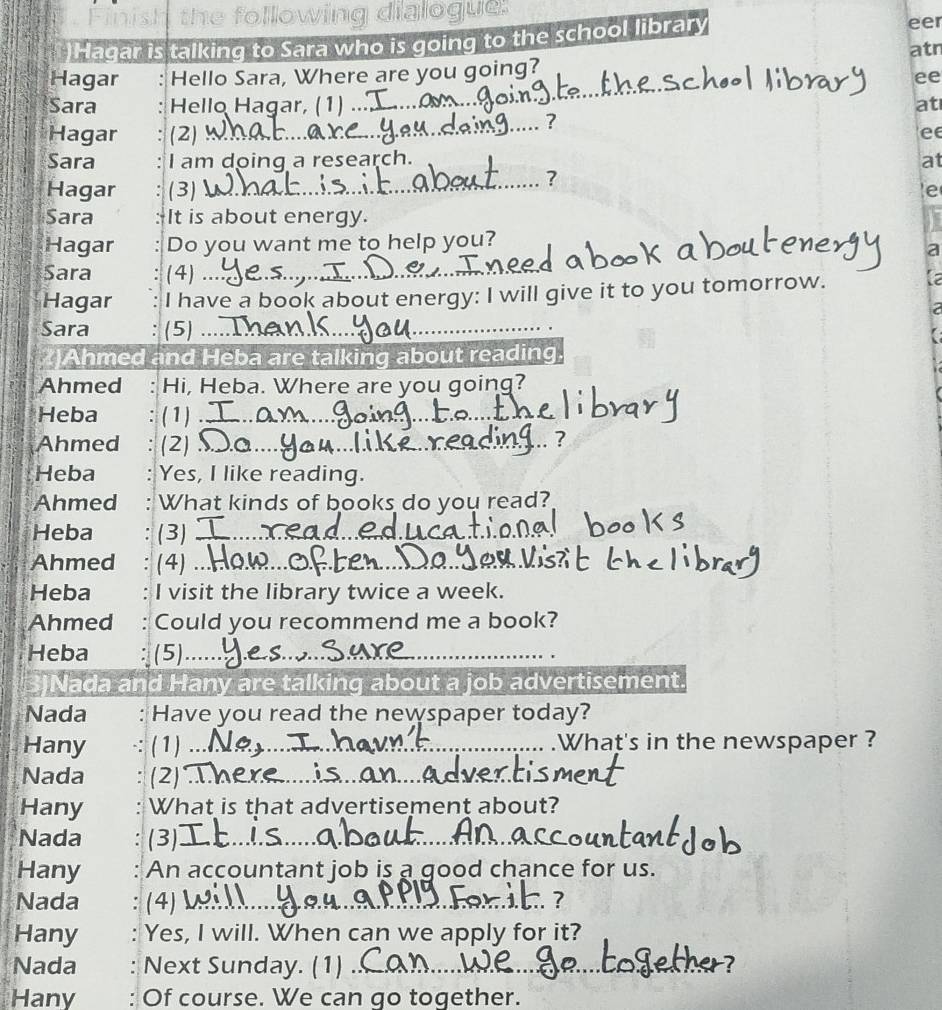 . Finish the following dialogue:
)Hagar is talking to Sara who is going to the school library
Hagar : Hello Sara, Where are you going?
Sara : Hello Hagar, (1) ...I....am...going.to...the.school library
Hagar : (2) what...are...you..doing..... ?
Sara : I am doing a research.
Hagar : (3) What..is..it...about....... ?
Sara : It is about energy.
Hagar : Do you want me to help you?
Sara : (4) ....yes..,..I...Do,..I need a book about energy
Hagar : I have a book about energy: I will give it to you tomorrow.
Sara : (5) .....Thank...you..................... .
2)Ahmed and Heba are talking about reading.
Ahmed : Hi, Heba. Where are you going?
Heba : (1) .I...am....going...to...the library
Ahmed : (2) Do....you...like..reading... ?
Heba : Yes, I like reading.
Ahmed : What kinds of books do you read?
Heba : (3) I.....read..educational books
Ahmed : (4) ..How...often...Do.you.Visit the library
Heba : I visit the library twice a week.
Ahmed : Could you recommend me a book?
Heba : (5)......yes..,..Sure..................... .
3)Nada and Hany are talking about a job advertisement.
Nada : Have you read the newspaper today?
Hany : (1) ...No,...I...havn't................ .What's in the newspaper ?
Nada : (2) There....is..an...advertisment
Hany : What is that advertisement about?
Nada : (3)It..is.....about....An.accountant Job
Hany : An accountant job is a good chance for us.
Nada : (4) will....you..apply.For.it.. ?
Hany : Yes, I will. When can we apply for it?
Nada : Next Sunday. (1) ..Can....we...go....together?
Hany : Of course. We can go together.